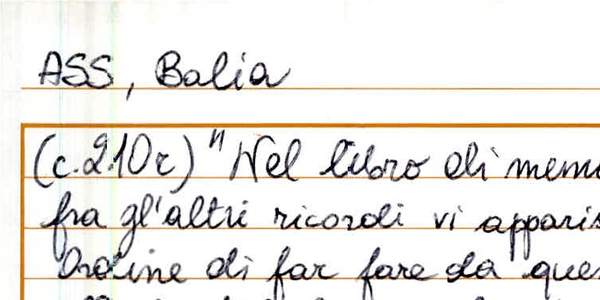 ASS, Balia
(c.210r) "Nel libro di mem
fra gl'altri ricordi vi appari
Ordine di far fare da que